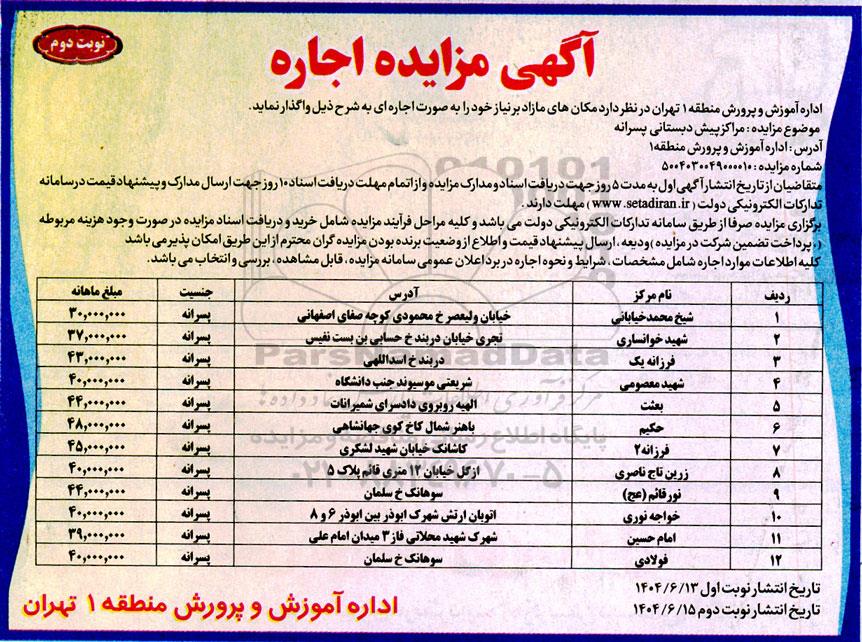 نوبت دوم
آگهی مزایده اجاره
اداره آموزش و پرورش منطقه ۱ تهران در نظر دارد مکان های مازاد بر نیاز خود را به صورت اجاره ای به شرح ذیل واگذار نماید.
موضوع مزایده : مراکز پیش دبستانی پسرانه
آدرس : اداره آموزش و پرورش منطقه۱
شماره مزایده : ۵۰۰۴۰۳۰۰۴۹۰۰۰۰۱۰
متقاضیان از تاریخ انتشار آگهی اول به مدت ۵ روز جهت دریافت اسناد و مدارک مزایده و از اتمام مهلت دریافت اسناد ۱۰ روز جهت ارسال مدارک و پیشنهاد قیمت در سامانه
تدارکات الکترونیکی دولت (www.setadiran.ir) مهلت دارند.
برگزاری مزایده صرفا از طریق سامانه تدارکات الکترونیکی دولت می باشد و کلیه مراحل فرآیند مزایده شامل خرید و دریافت اسناد مزایده در صورت وجود هزینه مربوطه
( ، پرداخت تضمین شرکت در مزایده )ودیعه ، ارسال پیشنهاد قیمت و اطلاع از وضعیت برنده بودن مزایده گران محترم از این طریق امکان پذیر می باشد
کلیه اطلاعات موارد اجاره شامل مشخصات ، شرایط و نحوه اجاره در برد اعلان عمومی سامانه مزایده ، قابل مشاهده ، بررسی و انتخاب می باشد.
ردیف نام مرکز آدرس جنسیت مبلغ ماهانه
۱ شیخ محمدخیابانی خیابان ولیعصر خ محمودی کوچه صفای اصفهانی پسرانه ۳۰,۰۰۰,۰۰۰
۲ شهید خوانساری تجری خیابان دربند خ حسابی بن بست نفیس پسرانه ۳۷,۰۰۰,۰۰۰
۳ فرزانه یک دربند خ اسداللهی پسرانه ۴۳,۰۰۰,۰۰۰
۴ شهید معصومی شریعتی موسیوند جنب دانشگاه پسرانه ۴۰,۰۰۰,۰۰۰
۵ بعثت الهیه روبروی دادسرای شمیرانات پسرانه ۴۴,۰۰۰,۰۰۰
۶ حکیم باهنر شمال کاخ کوی جهانشاهی پسرانه ۴۸,۰۰۰,۰۰۰
۷ فرزانه۲ کاشانک خیابان شهید لشگری پسرانه ۴۵,۰۰۰,۰۰۰
۸ زرین تاج ناصری ازگل خیابان ۱۲ متری قائم پلاک ۵ پسرانه ۴۰,۰۰۰,۰۰۰
۹ نور قائم (عج) سوهانک خ سلمان پسرانه ۴۴,۰۰۰,۰۰۰
۱۰ خواجه نوری اتوبان ارتش شهرک ابوذر بین ابوذر ۶ و ۸ پسرانه ۴۰,۰۰۰,۰۰۰
۱۱ امام حسین شهرک شهید محلاتی فاز ۳ میدان امام علی پسرانه ۳۹,۰۰۰,۰۰۰
۱۲ فولادی سوهانک خ سلمان پسرانه ۴۰,۰۰۰,۰۰۰
تاریخ انتشار نوبت اول ۱۴۰۴/۶/۱۳
تاریخ انتشار نوبت دوم ۱۴۰۴/۶/۱۵
اداره آموزش و پرورش منطقه ۱ تهران
ParsNamadData